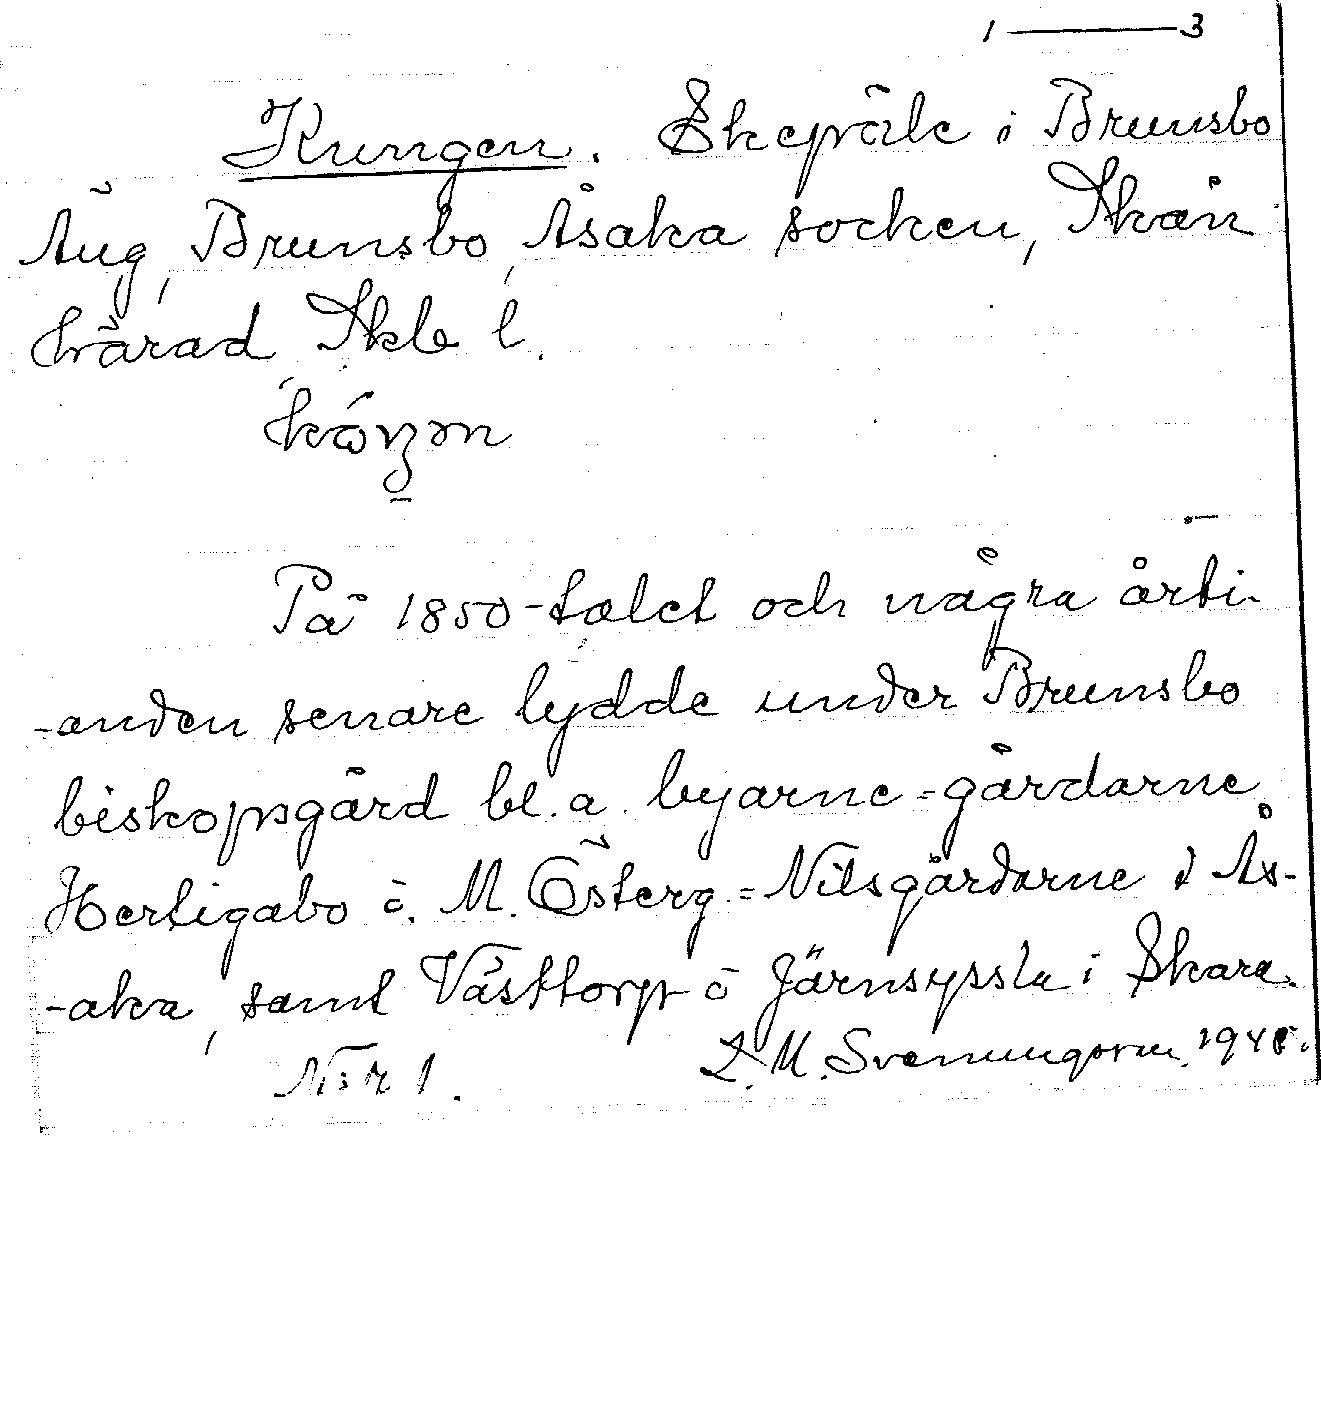 1 — 3
Kungen. Ekepåle i Brunsbo
Äng, Brunsbo, Åsaka socken, Skån
härad Skb l.
På 1850-talet och några årti-
-anden senare lydde under Brunsbo
biskopsgård bl. a. byarne-gårdarne
Hertigabo o. M. Österg = Nilsgårdarne i Ås-
-aka, samt Västtorp o Järnsyssla i Skara.
N:r 1. L. M. Svenungsson.